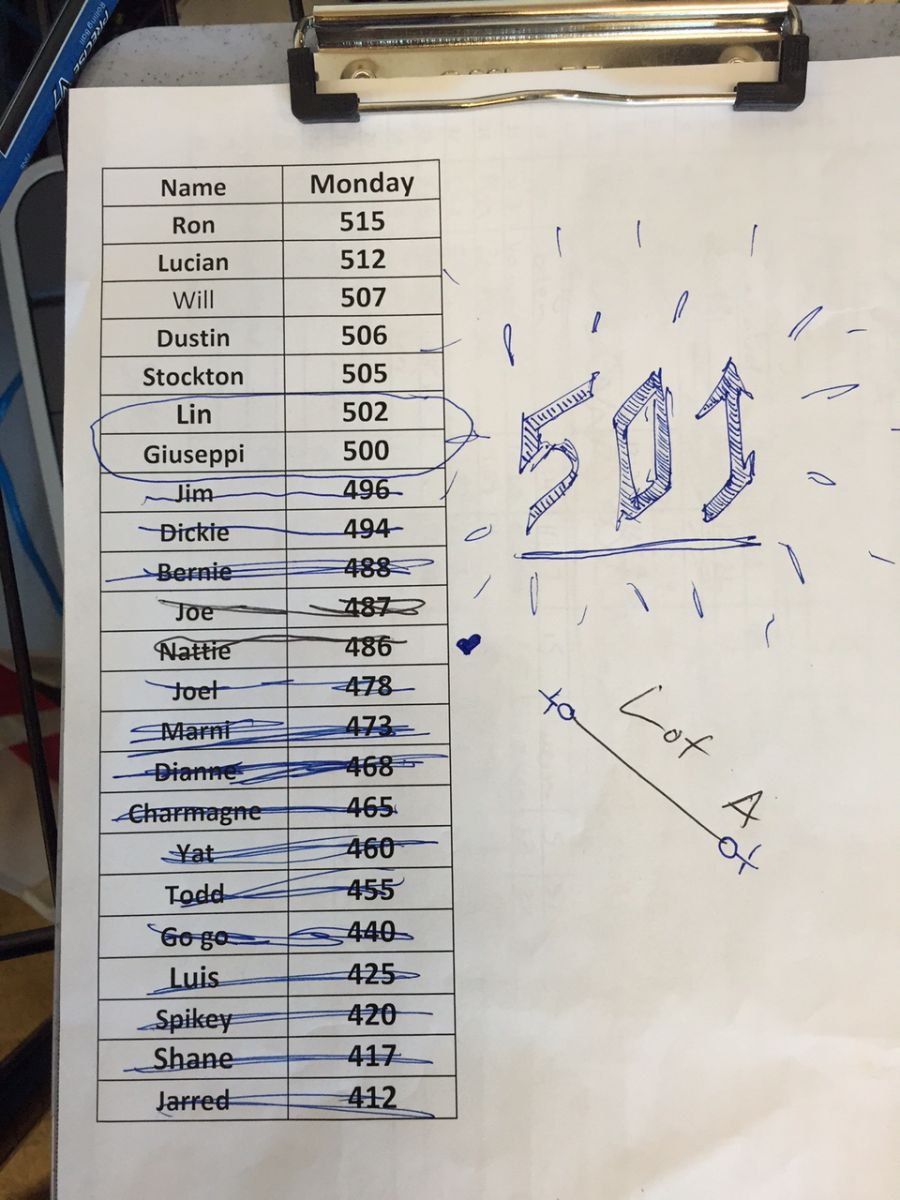 PRECISE V7
Rolling Ball
FINE
Name Monday
Ron 515
Lucian 512
Will 507
Dustin 506
Stockton 505
Lin 502
Giuseppi 500
Jim 496
Dickie 494
Bernie 488
Joe 487
Nattie 486
Joel 478
Marni 473
Dianne 468
Charmagne 465
Yat 460
Todd 455
Go go 440
Luis 425
Spikey 420
Shane 417
Jarred 412
501
Lot
A